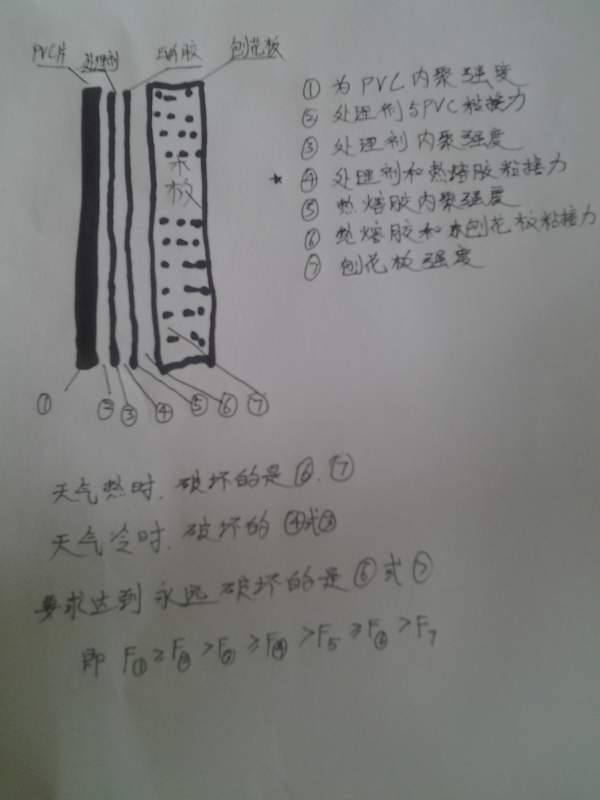 PVC片 处理剂 EVA胶 刨花板
木板
① 为PVC内聚强度
② 处理剂与PVC粘接力
③ 处理剂内聚强度
★ ④ 处理剂和热熔胶粒接力
⑤ 热熔胶内聚强度
⑥ 热熔胶和木刨花板粘接力
⑦ 刨花板强度
① ② ③ ④ ⑤ ⑥ ⑦
天气热时.破坏的是⑥.⑦
天气冷时.破坏的④或③
要求达到永远破坏的是⑥或⑦
即 F① ≥ F③ > F② ≥ F④ > F5 ≥ F⑥ > F7